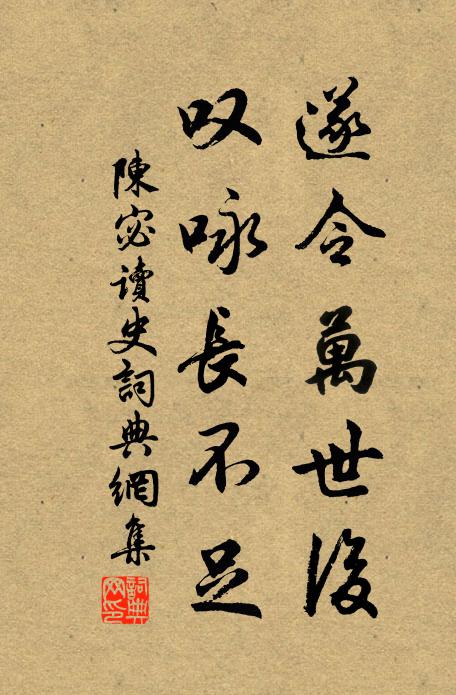 遂令萬世後
叹咏長不足
陳宓讀史詞典網集
詞典網印